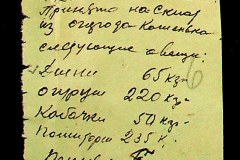 Принято на склад
из огорода Кошенька
следующие овощи:
Дыни 65 кг
огурцы 220 кг
Кабачки 50 кг
Помидоры 235 к.